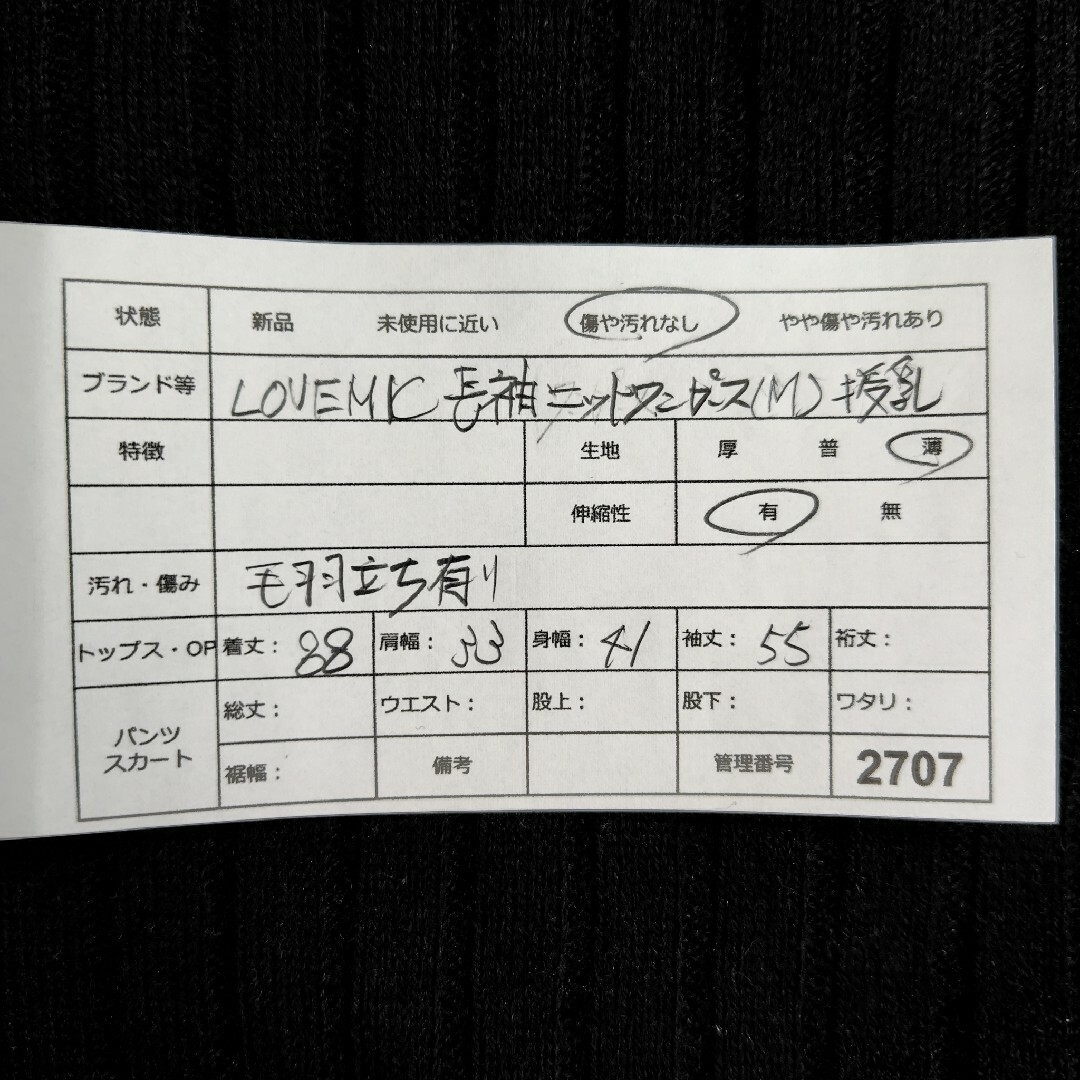 状態 新品 未使用に近い 傷や汚れなし やや傷や汚れあり
ブランド等 LOVEMIC 長袖ニットワンピース(M) 授乳
特徴 生地 厚 普 薄
伸縮性 有 無
汚れ・傷み 毛羽立ち有り
トップス・OP 着丈: 88 肩幅: 33 身幅: 41 袖丈: 55 裄丈:
パンツ スカート 総丈: ウエスト: 股上: 股下: ワタリ:
裾幅: 備考 管理番号 2707